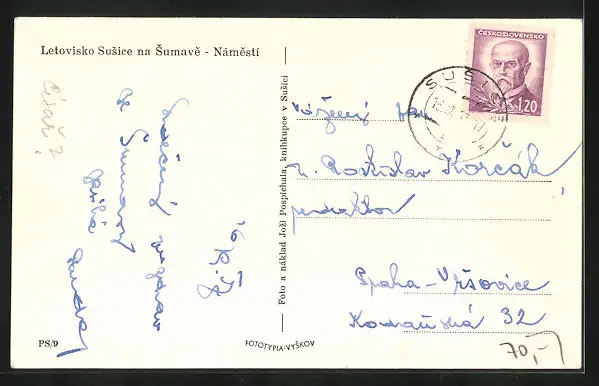 Letovisko Sušice na Šumavě - Náměstí
Císař ?
Srdečný pozdrav
ze Šumavy
Foto a náklad Joži Pospíchala, knihkupce v Sušici
ČESKOSLOVENSKO
K 1,20
SUŠICE
Vážený pan
Rostislav Korčák
redaktor
Praha-Vršovice
Kodaňská 32
70,-
PS/9
FOTOTYPIA-VYŠKOV